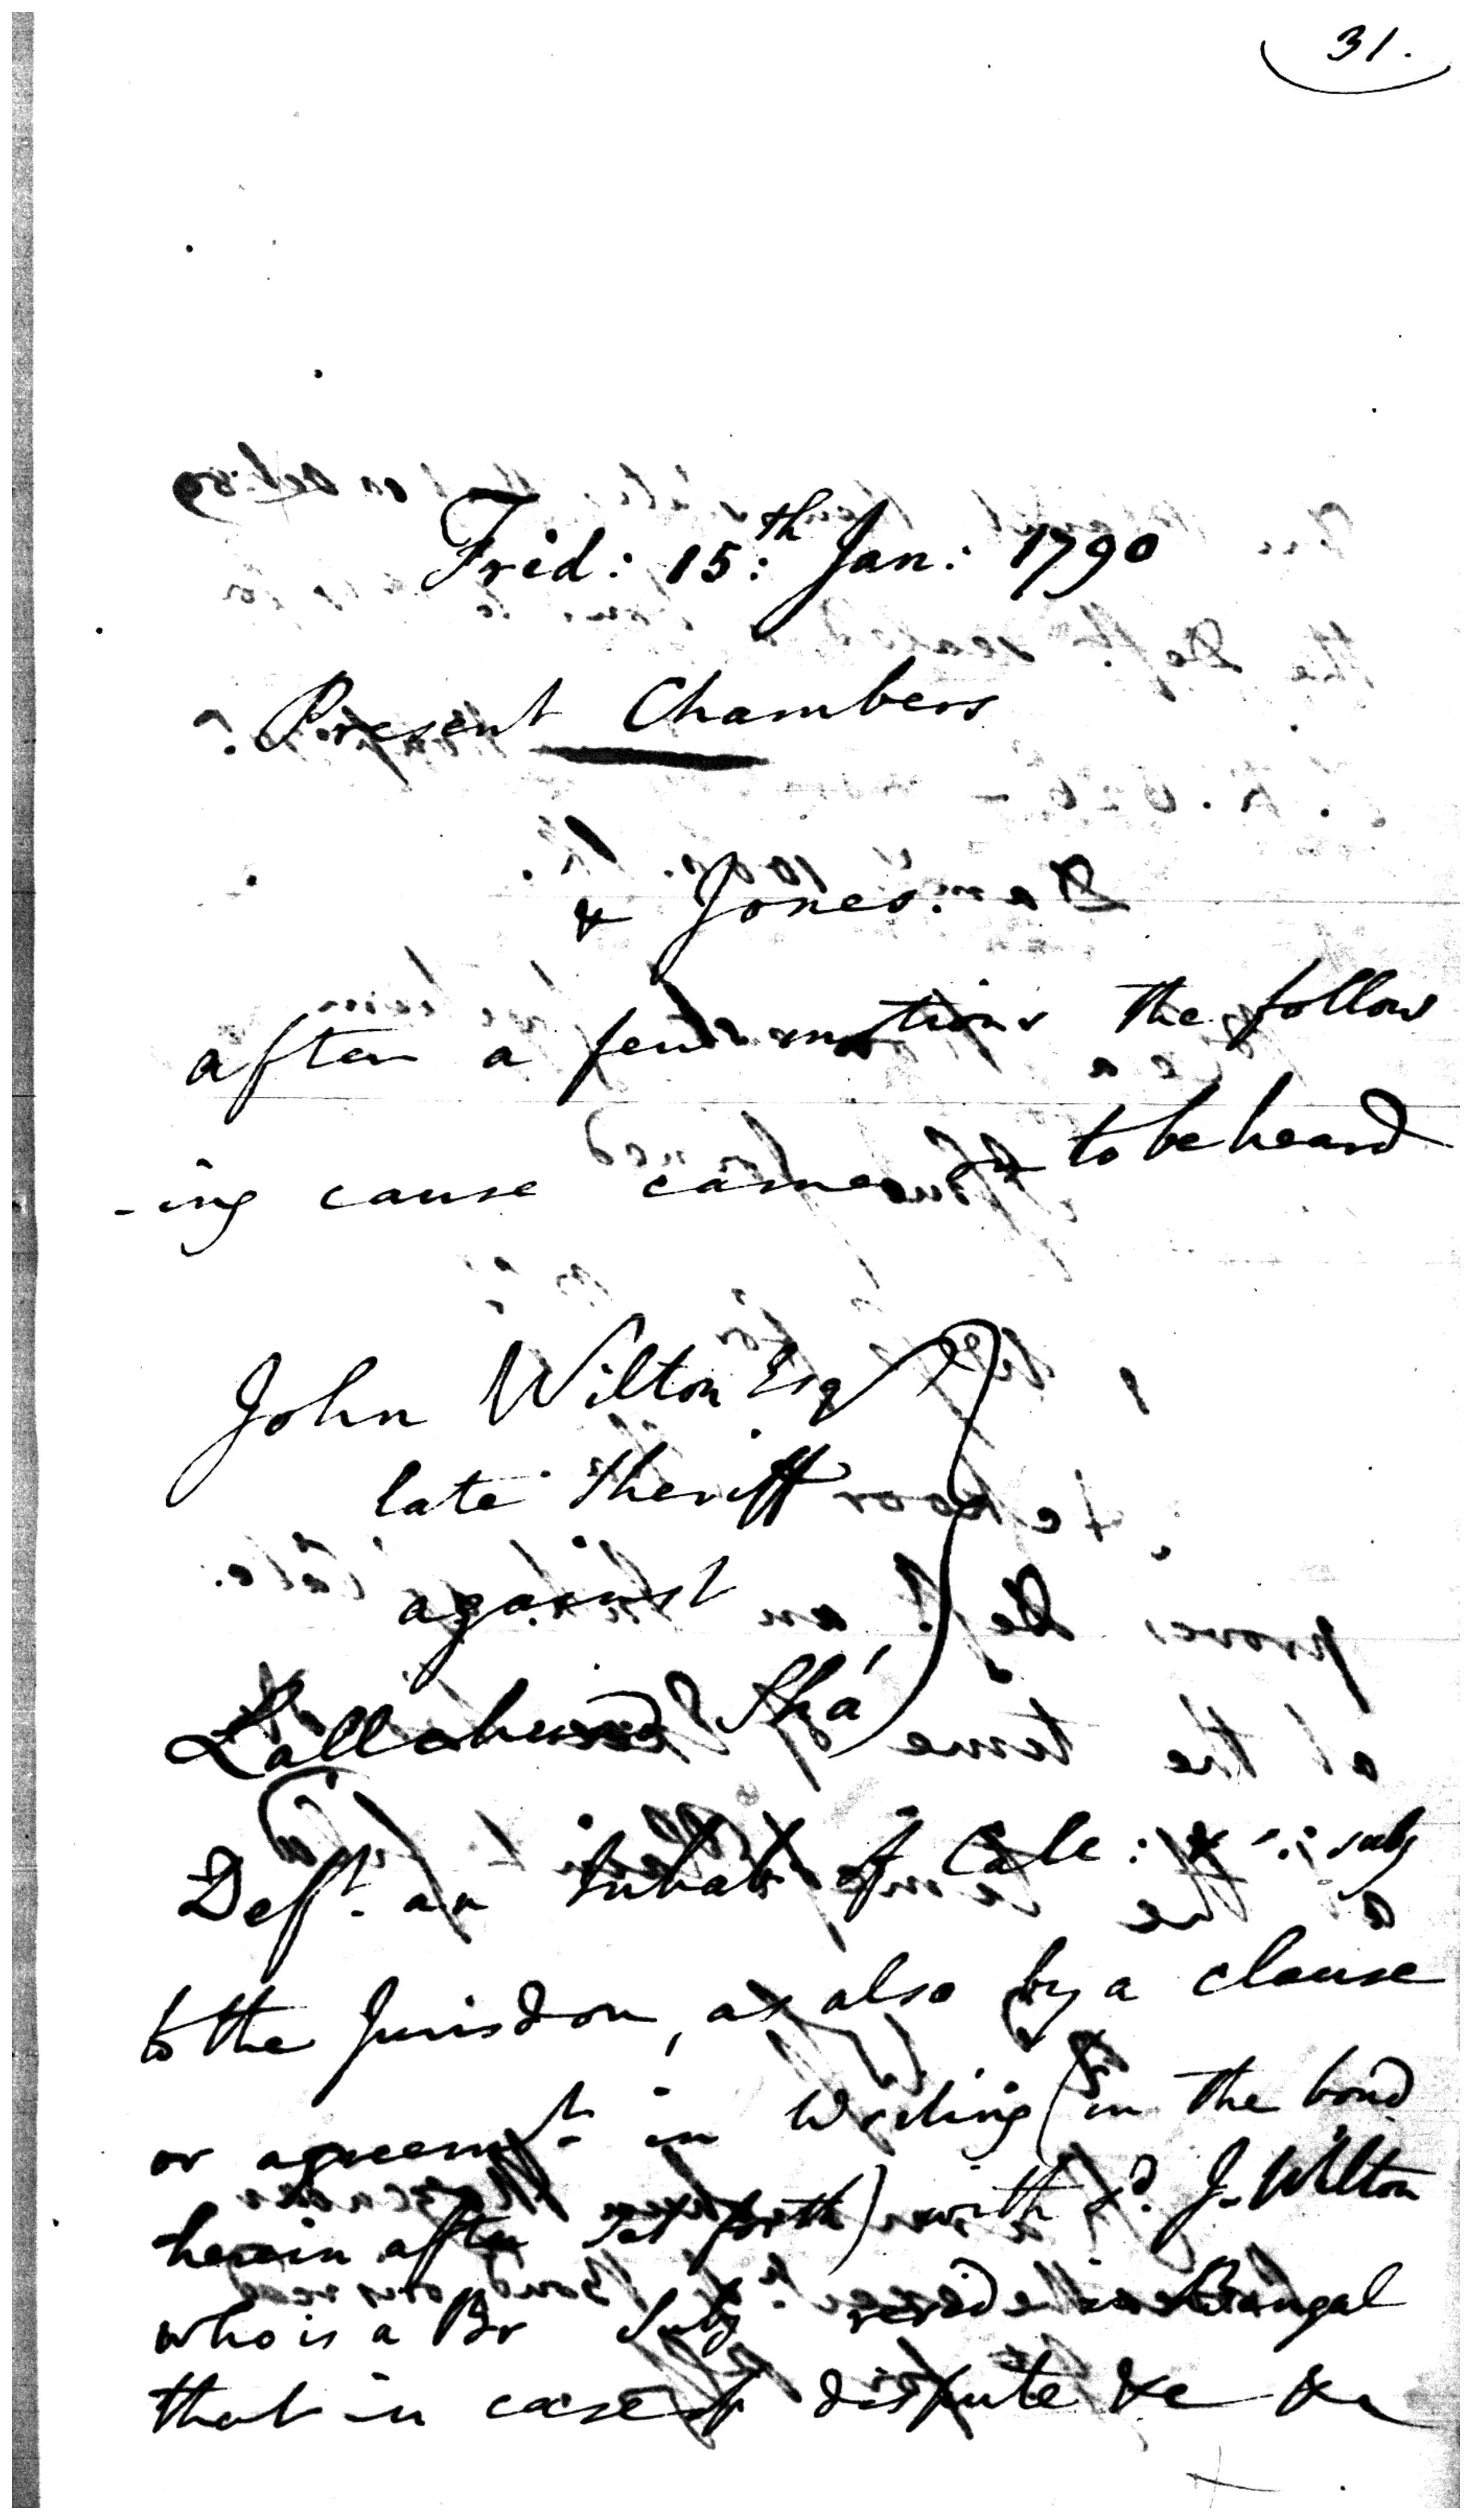 31.
Frid: 15:th Jan: 1790
Present Chambers
& Jones.
after a few motions the follow
-ing cause came on to be heard
John Wilton Esq
late Sheriff
against
Shá
Deft. an Inhabt of Calc: & subj
to the Jurisdon, as also by a clause
or agreemt in writing (in the bond
herein after set forth) with sd. J. Wilton
who is a Br Subj resid in Bengal
that in case of dispute &c &c